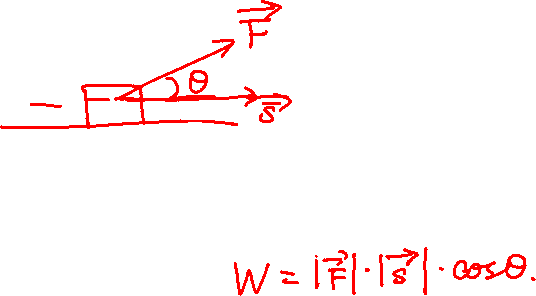 F⃗
θ
s⃗
W = |F⃗|·|s⃗|·cosθ.